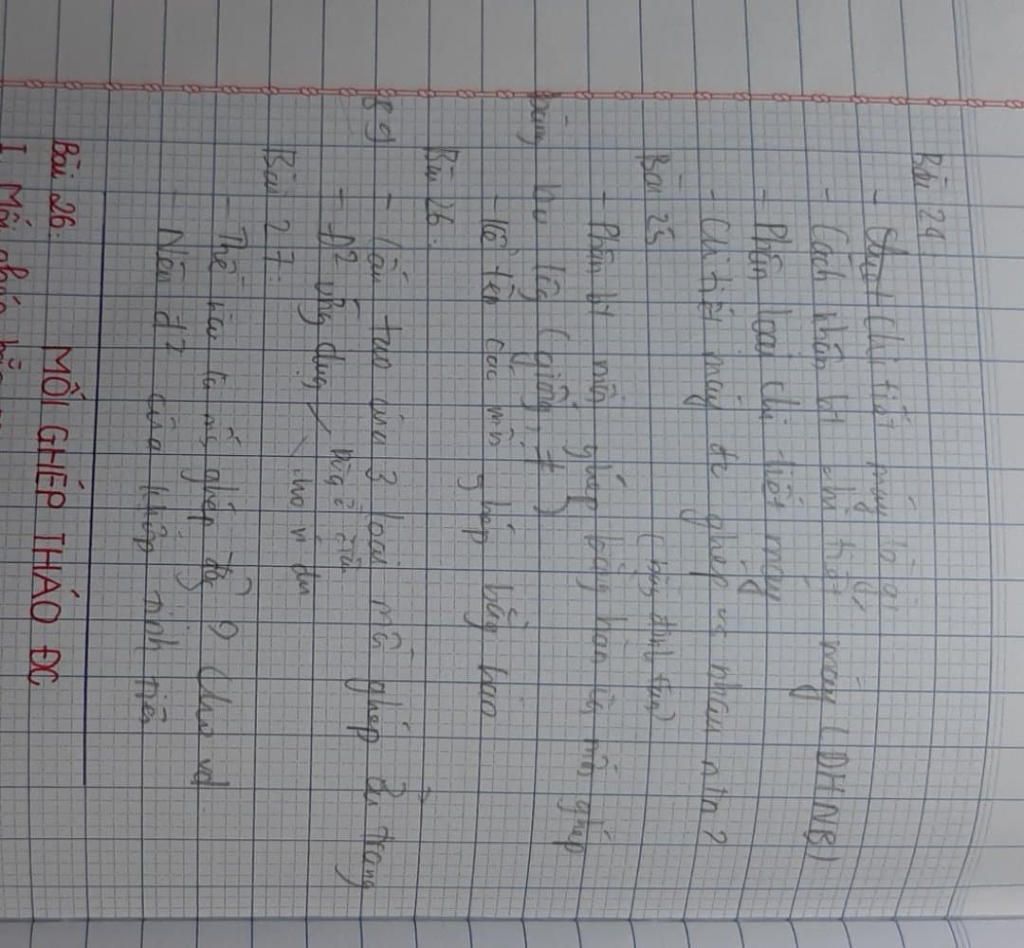 Bài 24
- Chi tiết máy là gì
- Cách nhận bt chi tiết máy (DHNB)
- Phân loại chi tiết máy
- Chi tiết máy đc ghép vs nhau ntn?
Bài 25 (bằng đinh tán)
- Phân bt mối ghép bằng hàn và mối ghép
bằng bu lông (giống, ≠)
- Kể tên các mối ghép bằng
Bài 26.
- Cấu tạo của 3 loại mối ghép ở trang
89
- Đ² ứng dụng
cho ví dụ
Bài 27:
- Thế nào là mối ghép động? Cho vd.
- Nêu đ² của khớp tịnh tiến
Bài 26. MỐI GHÉP THÁO ĐC
I. Mối ghép bằng